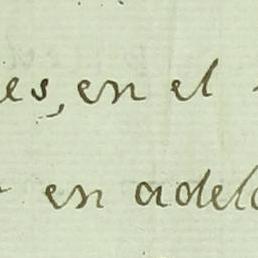 es, en el
en adel